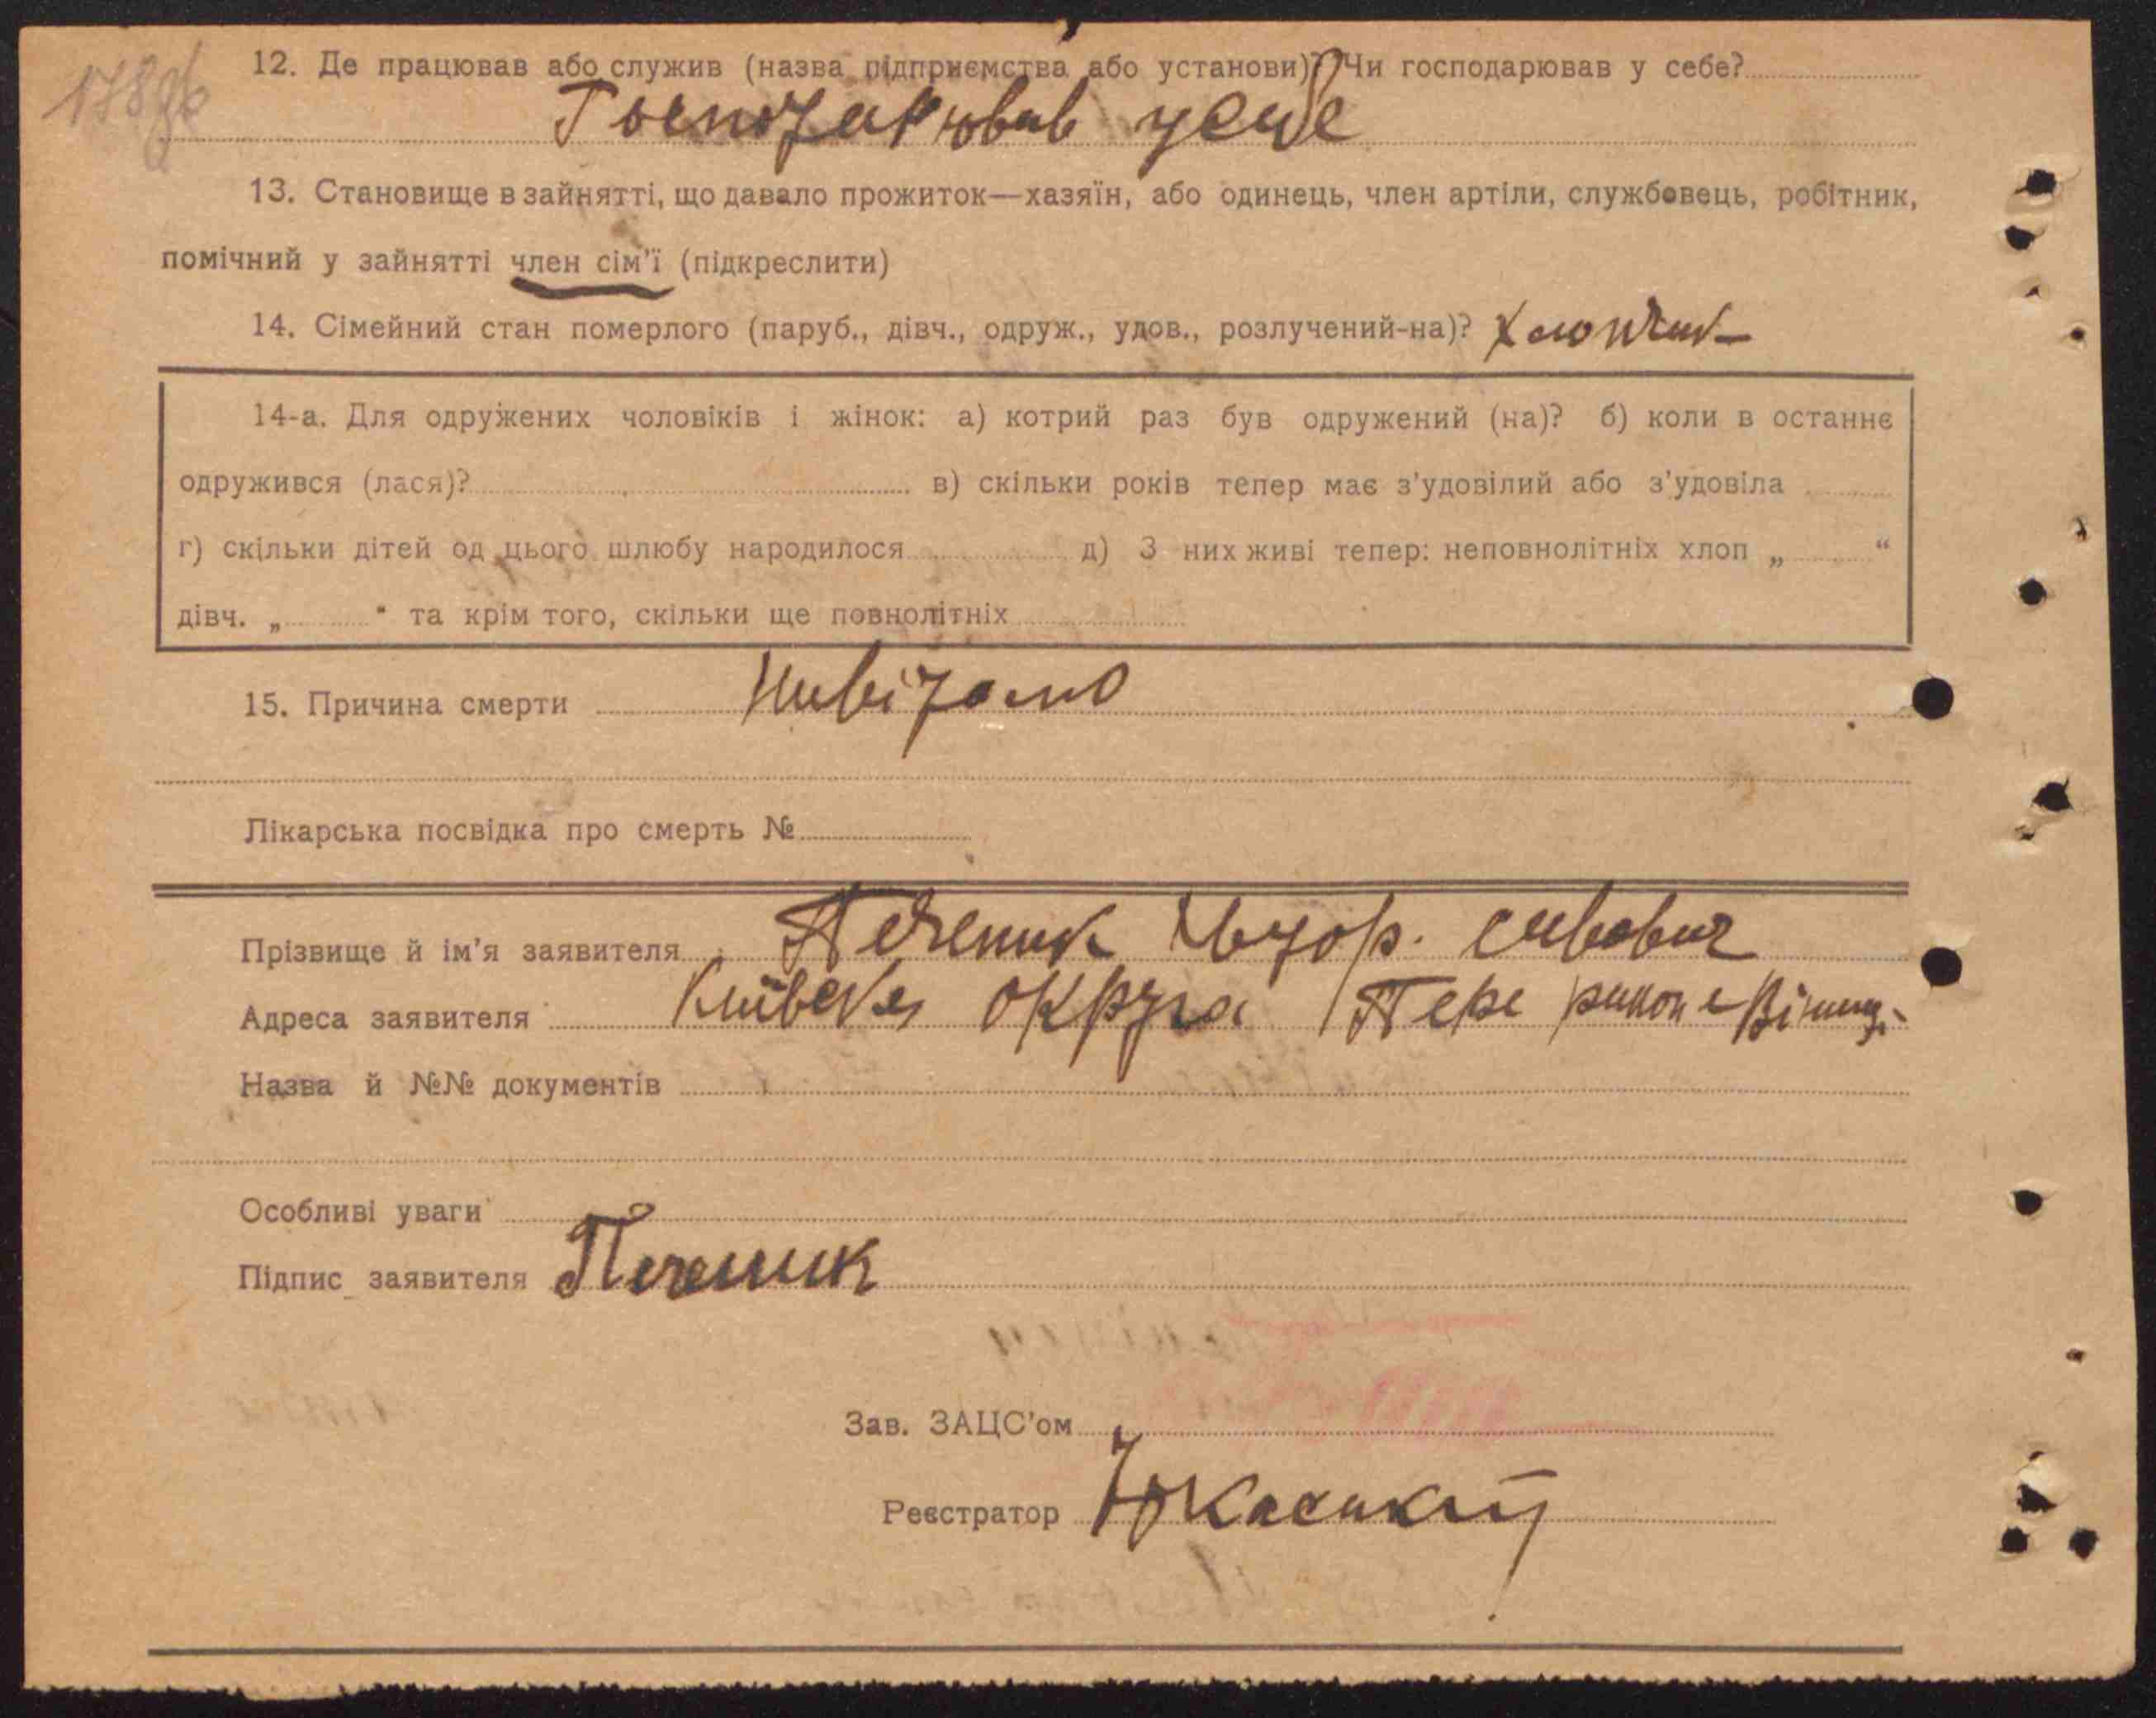 178 зв
12. Де працював або служив (назва підприємства або установи)? Чи господарював у себе?
Господарював у себе
13. Становище в зайнятті, що давало прожиток—хазяїн, або одинець, член артіли, службовець, робітник,
помічний у зайнятті член сім'ї (підкреслити)
14. Сімейний стан померлого (паруб., дівч., одруж., удов., розлучений-на)? Хлопчик
14-а. Для одружених чоловіків і жінок: а) котрий раз був одружений (на)? б) коли в останнє
одружився (лася)? в) скільки років тепер має з'удовілий або з'удовіла
г) скільки дітей од цього шлюбу народилося д) З них живі тепер: неповнолітніх хлоп „ “
дівч. „ “ та крім того, скільки ще повнолітніх
15. Причина смерти Нивідомо
Лікарська посвідка про смерть №
Прізвище й ім'я заявителя Печеник
Адреса заявителя Київська округа
Назва й №№ документів
Особливі уваги
Підпис заявителя Печеник
Зав. ЗАЦС'ом
Реєстратор